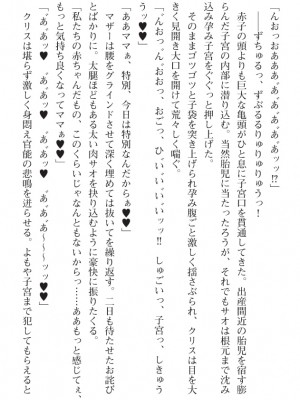 「んおっおあああ゛あ゛あ゛あ゛あ゛ッッ!?」
――ずちゅるっ、ずぶるるりゅりゅりゅうっ!
赤子の頭よりも巨大な亀頭がひと息に子宮口を貫通してきた。出産間近の胎児を宿す膨
らんだ子宮の内部に潜り込む。当然胎児に当たったろうが、それでもサオは根元まで沈み
込み孕み子宮をぐぐっと押し上げた。
そのままゴツゴツと子袋を突き上げられ孕み腹ごと激しく揺さぶられ、クリスは目を大
きく見開き大口を開けて荒々しく喘ぐ。
「んおっ、んおおっ、おごっ、ひ、い、い、い、いッッ!! しゅごいっ、子宮っ、しきゅう
うッ♥♥」
「ああママぁ、特別、今日は特別なんだからぁ♥♥」
マザーは腰をグラインドさせて深く埋めては抜いてを繰り返す。二日も待たせたお詫び
とばかりに。太腿ほどもある太い肉サオを抉り込むように豪快に振りたくる。
「私たちの赤ちゃんだもの、このくらいじゃなんともないからっ……ああもっと感じてぇ、
もっと気持ち良くなってママぁ♥♥」
「あ゛ぁッッ♥ あ゛ぁッッ♥ あ゛、あ゛あ゛あ゛～～ッッ♥♥」
クリスは堪らず激しく身悶え官能の悲鳴を迸らせる。よもや子宮まで犯してもらえると